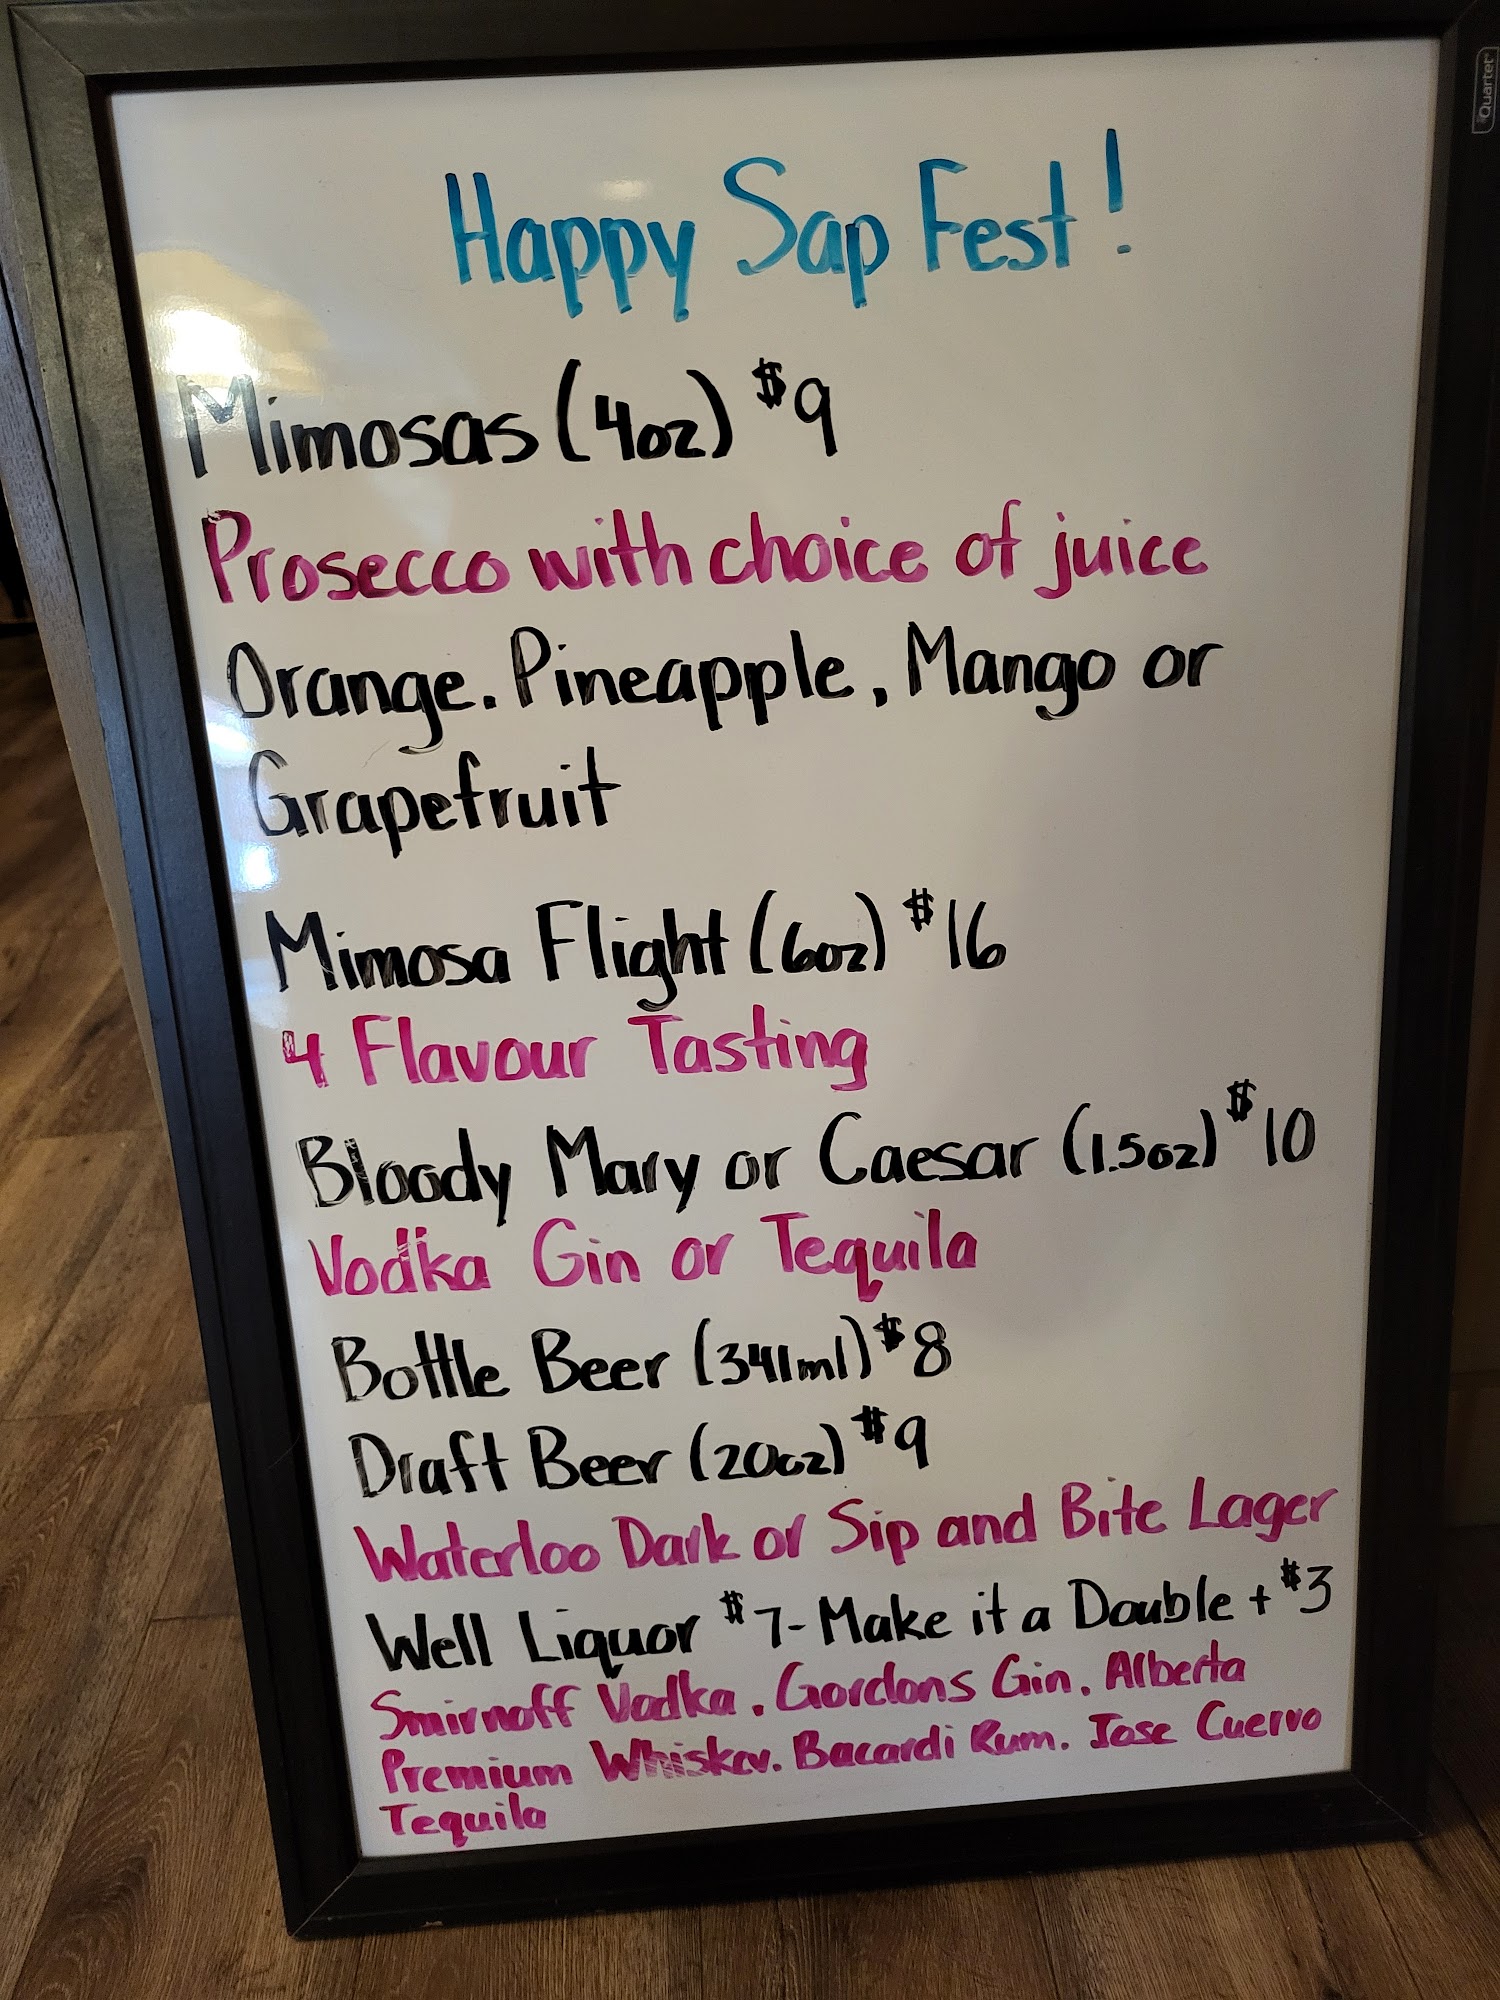 Quartet
Happy Sap Fest!
Mimosas (4oz) $9
Prosecco with choice of juice
Orange. Pineapple, Mango or
Grapefruit
Mimosa Flight (6oz) $16
4 Flavour Tasting
Bloody Mary or Caesar (1.5oz) $10
Vodka Gin or Tequila
Bottle Beer (341ml) $8
Draft Beer (20oz) $9
Waterloo Dark or Sip and Bite Lager
Well Liquor $7-Make it a Double +$3
Smirnoff Vodka. Gordons Gin. Alberta
Premium Whiskey. Bacardi Rum. Jose Cuervo
Tequila